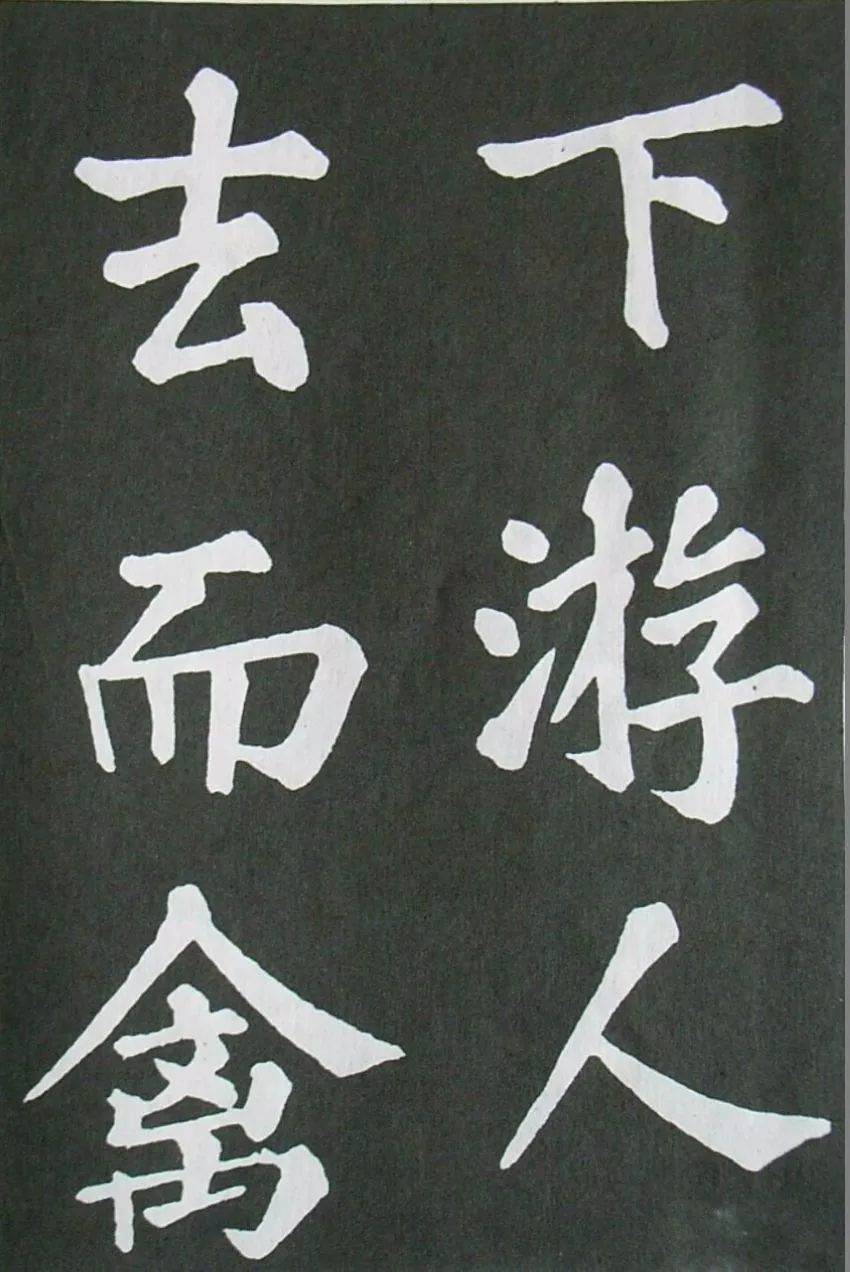 下游人
去而禽